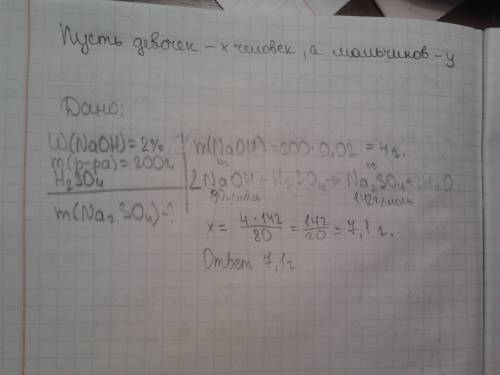 Пусть девочек – x человек, а мальчиков – y
Дано:
W(NaOH)=2%
m(р-ра)=200г.
H₂SO₄
m(Na₂SO₄)-?
m(NaOH)=200·0,02=4г.
4г xг
2NaOH + H₂SO₄ → Na₂SO₄+2H₂O
80г/моль 142г/моль
x = 4·142/80 = 142/20 = 7,1 г.
Ответ 7,1г